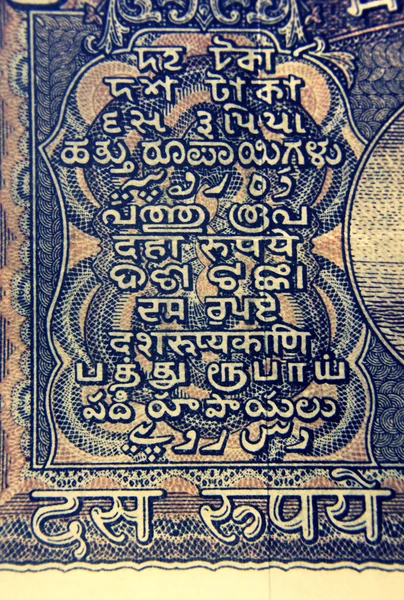 দহ টকা
দশ টাকা
દસ રૂપિયા
ಹತ್ತು ರೂಪಾಯಿಗಳು
പത്തു രൂപ
दहा रुपये
ଦଶ ଟଙ୍କା
ਦਸ ਰੁਪਏ
दशरूप्यकाणि
பத்து ரூபாய்
పది రూపాయలు
دس روپے
दस रूपये